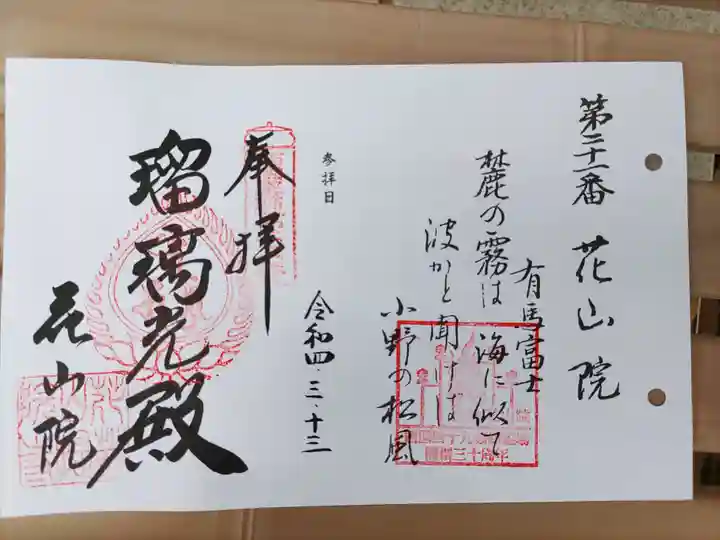 第二十一番 花山院
有馬富士
麓の霧は海に似て
波かと聞けば
小野の松風
参拝日
令和四・三・十三
奉拝
瑠璃光殿
花山院
開創三十周年